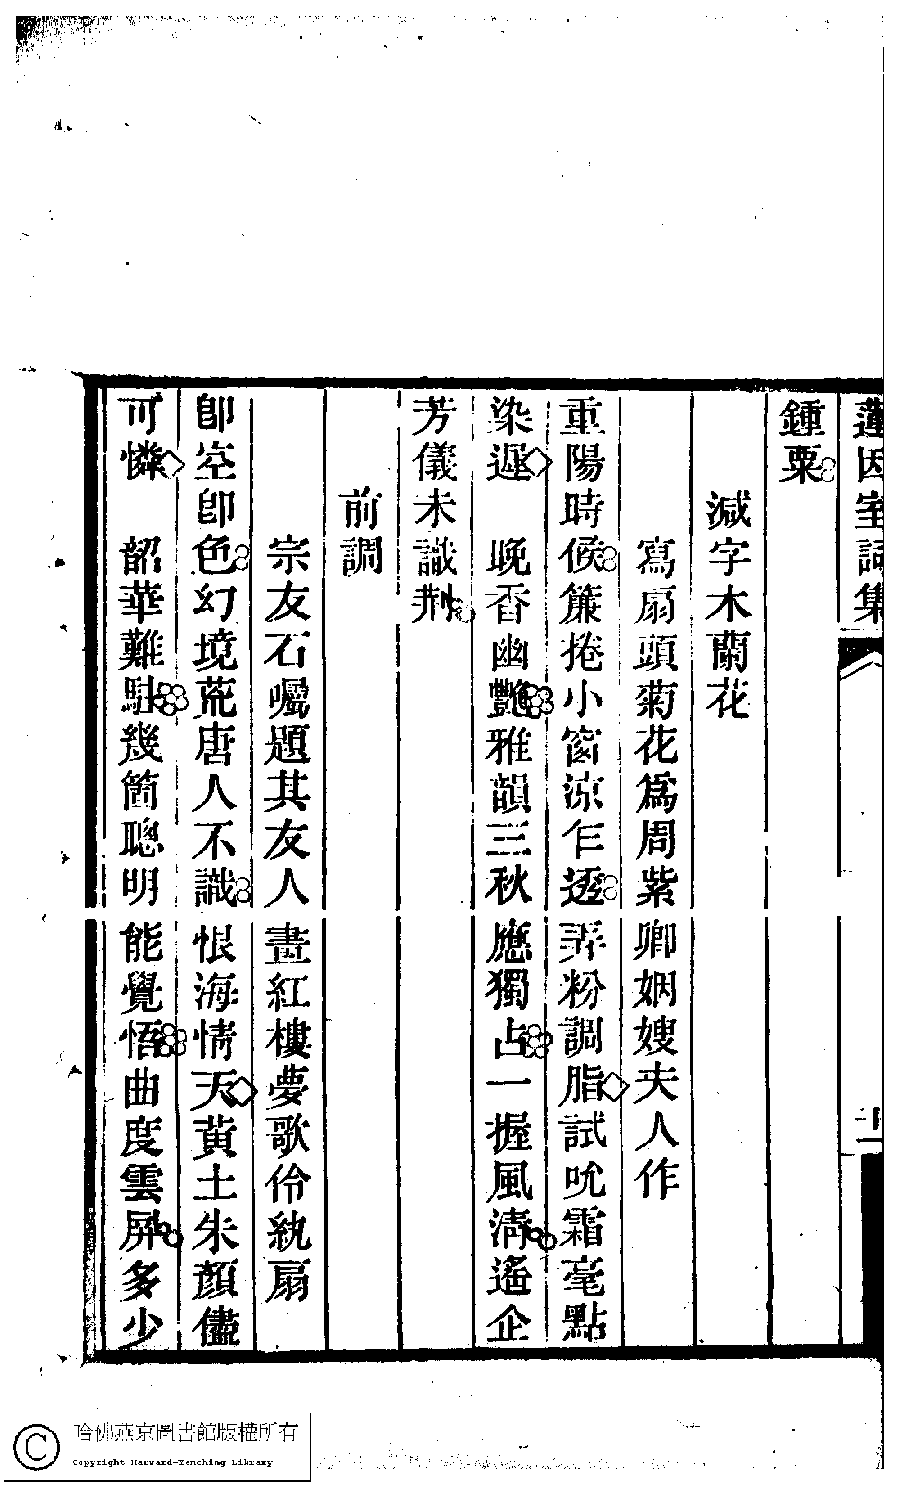 蓮因室詞集
鍾粟
減字木蘭花
寫扇頭菊花爲周紫卿姻嫂夫人作
重陽時候簾捲小窗涼乍透弄粉調脂試吮霜毫點
染遲　晚香幽艷雅韻三秋應獨占一握風淸遙企
芳儀未識荆
前調
宗友石囑題其友人畫紅樓夢歌伶紈扇
卽空卽色幻境荒唐人不識恨海情天黃土朱顏儘
可憐　韶華難駐幾箇聰明能覺悟曲度雲屏多少
哈佛燕京圖書館版權所有
Copyright Harvard-Yenching Library